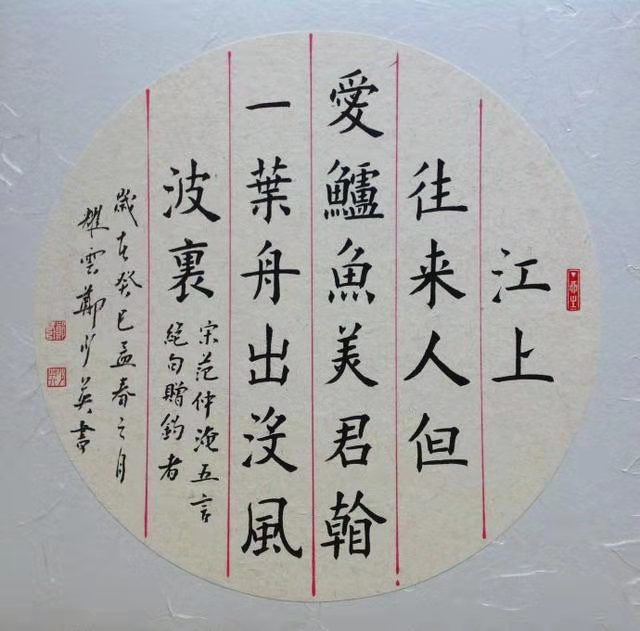 江上
往来人但
愛鱸魚美君
一葉舟出没風
波裏
宋范仲淹五言
絕句贈釣者
歲在癸巳孟春之月
雲鄭少英書